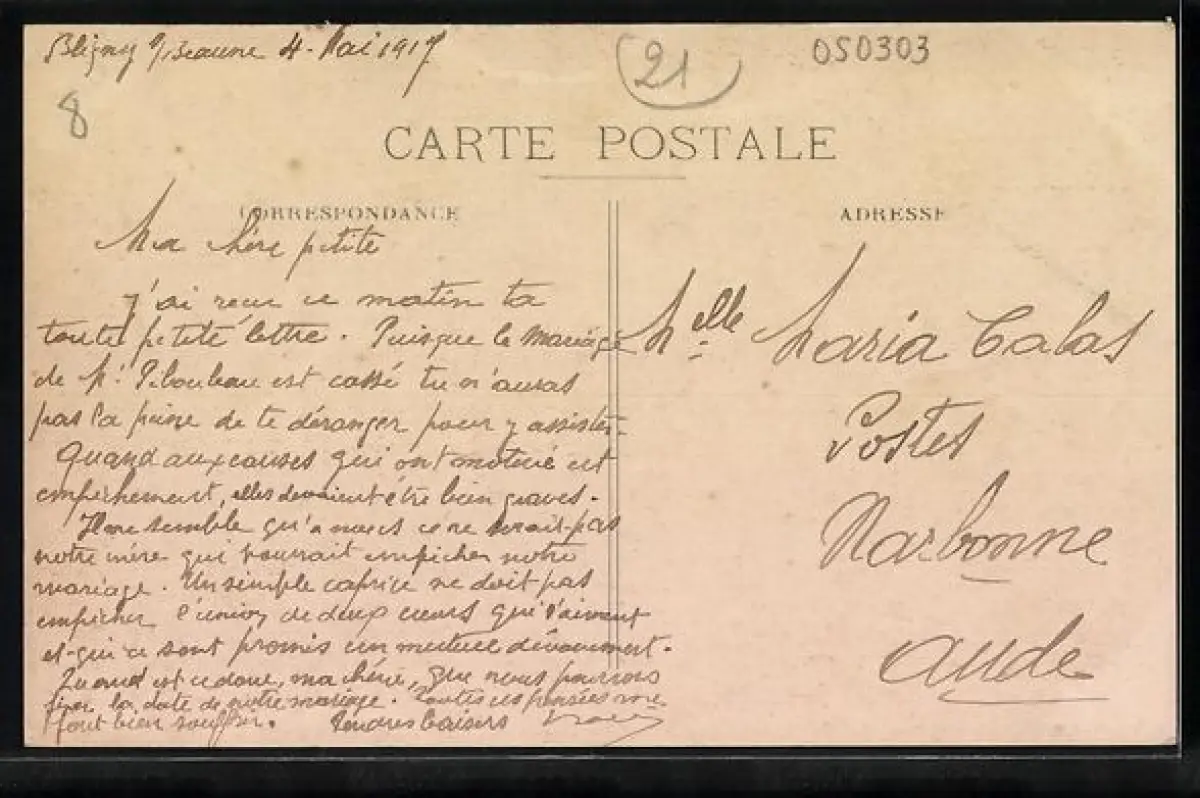 Bligny s/Beaune 4 Mai 1917
21
050303
8
CARTE POSTALE
CORRESPONDANCE
ADRESSE
Ma chère petite
J'ai reçu ce matin ta
toute petite lettre. Puisque le mariage
de Mr est cassé tu n'auras
pas la peine de te déranger pour y assister.
Quand aux causes qui ont motivé cet
empêchement, elles devaient être bien graves.
Il me semble qu'à nous ce ne serait pas
notre mère qui pourrait empêcher notre
mariage. Un simple caprice ne doit pas
empêcher l'union de deux cœurs qui s'aiment
et qui se sont promis un mutuel dévouement.
Quand est ce donc, ma chérie, que nous pourrons
fixer la date de notre mariage. Toutes ces pensées me
font bien souffrir. Tendres baisers
Melle Maria Calas
Postes
Narbonne
Aude